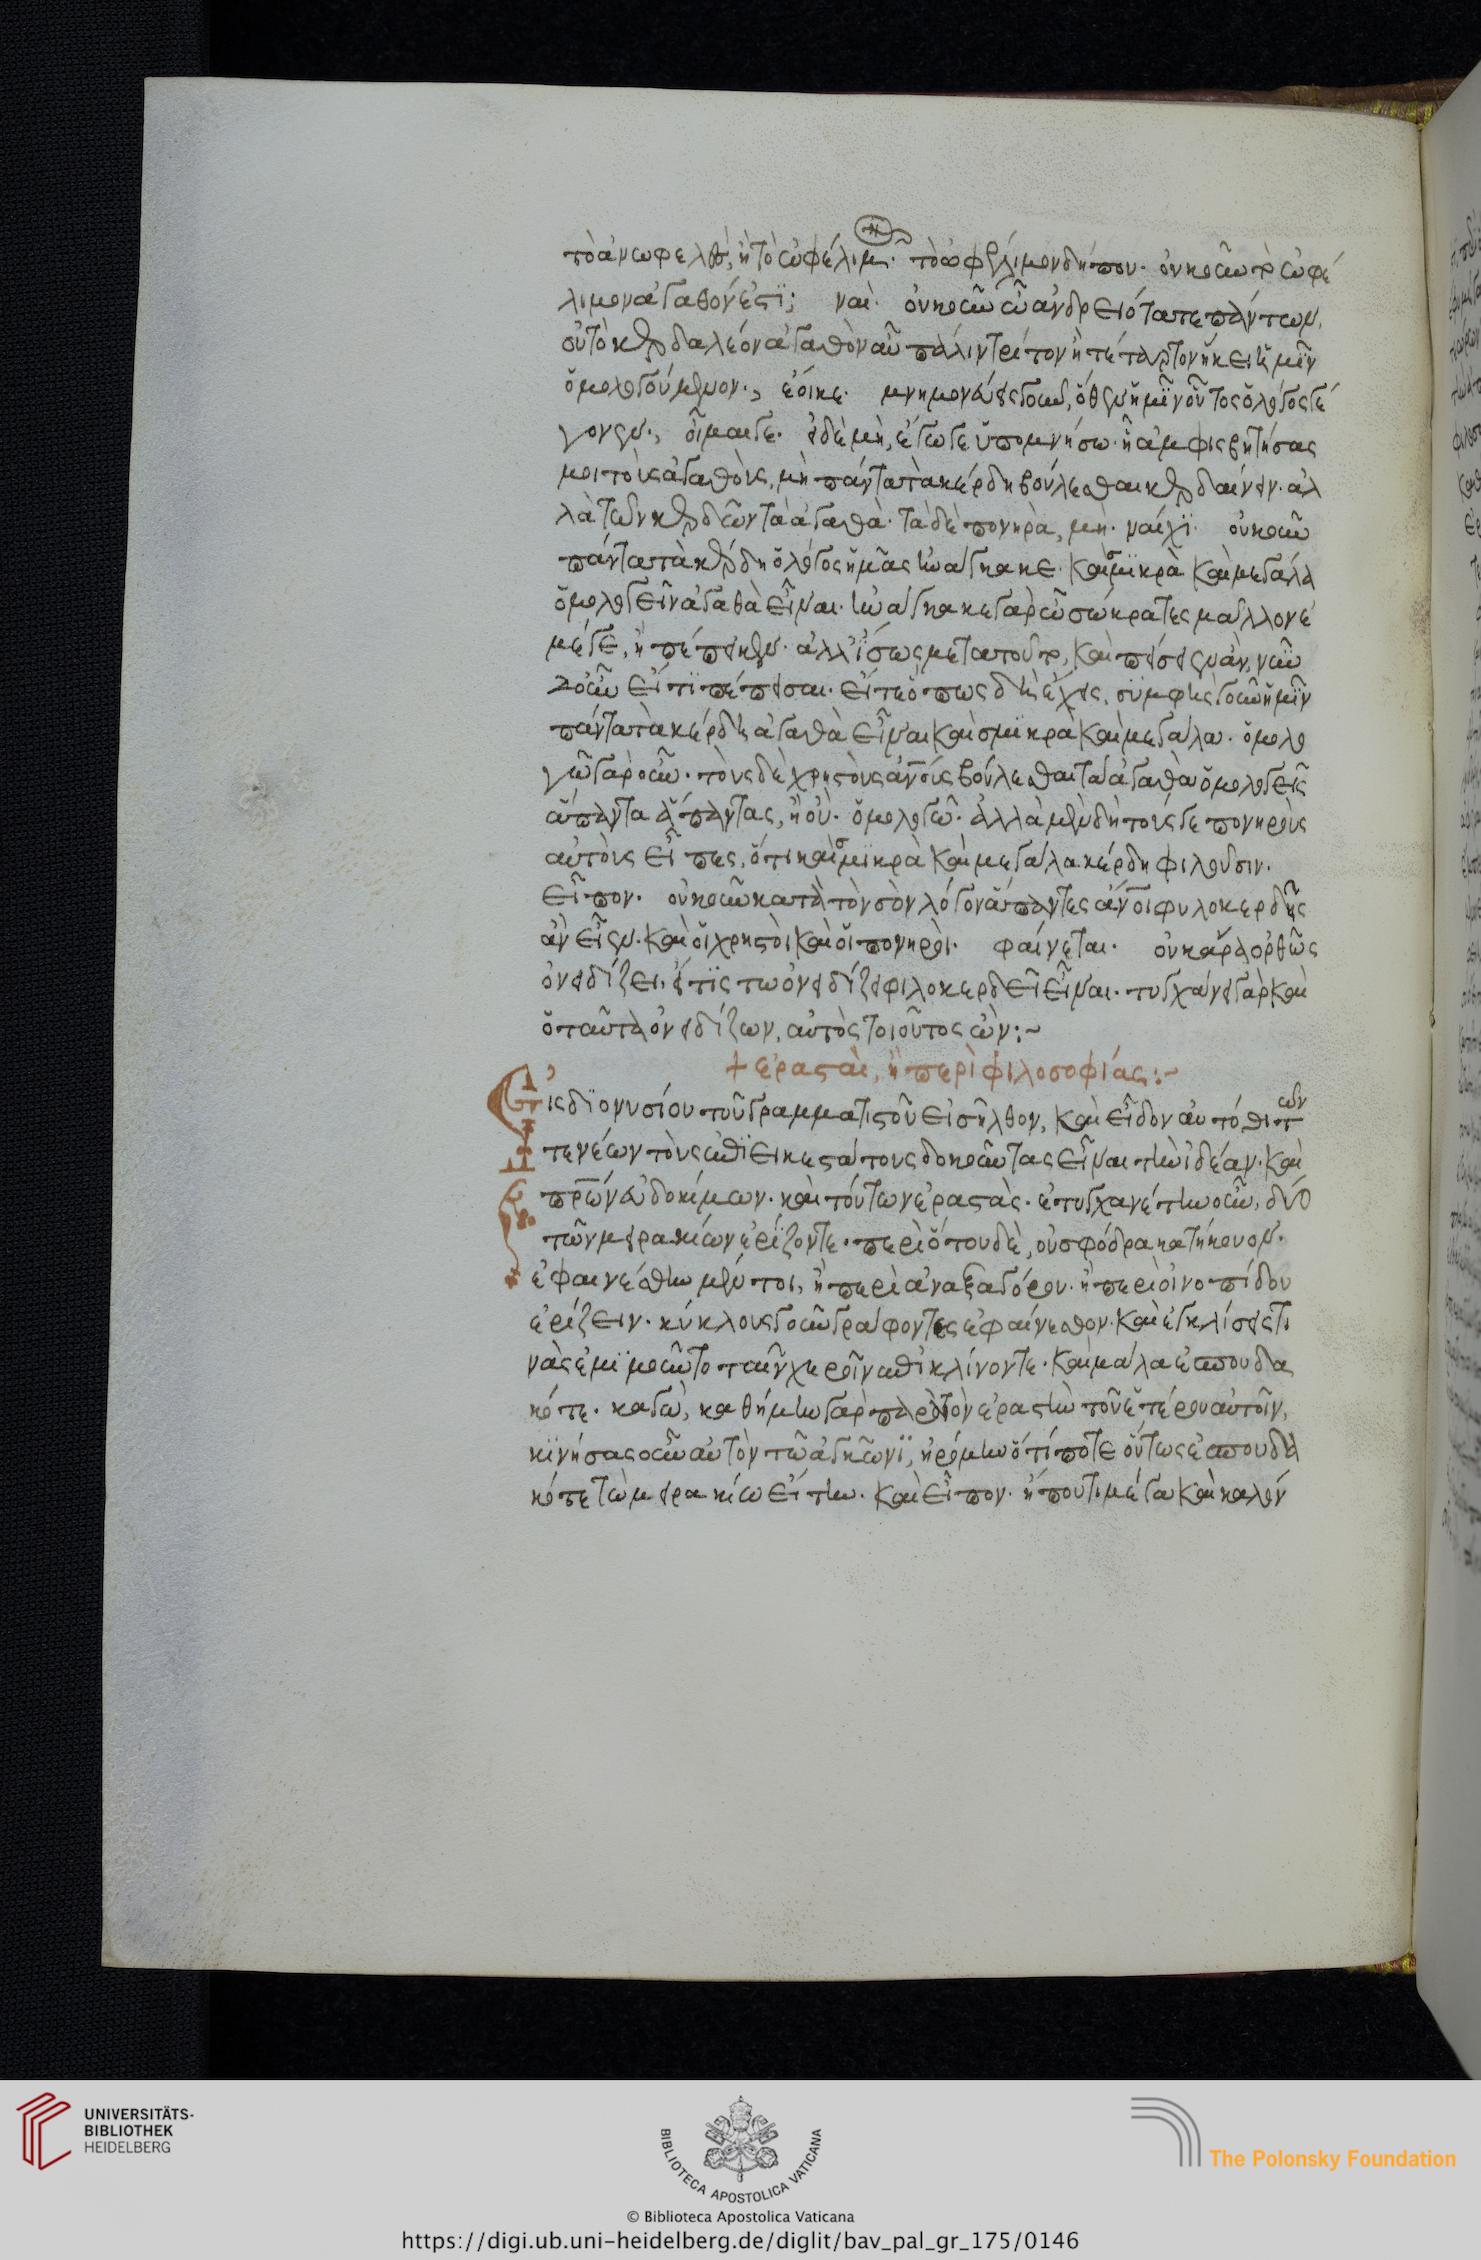 τὸ ἀνωφελὲς, ἢ τὸ ὠφέλιμον· τὸ ὠφέλιμον δήπου· οὐκοῦν τὸ ὠφέ
λιμον ἀγαθόν ἐστϊ; ναί· οὐκοῦν ὦ ἀνδρειότατε πάντων,
οὐ τὸ κερδαλέον ἀγαθὸν αὖ πάλιν τρίτον ἢ τέταρτον ἥκει ἡμῖν
ὁμολογούμενον·, ἔοικε· μνημονεύεις οὖν, ὅθεν ἡμῖν οὗτος ὁ λόγος γέ
γονεν·, οἶμαί γε· εἰ δὲ μὴ, ἐγώ σε ὑπομνήσω· ἠμφισβήτησάς
μοι τοὺς ἀγαθοὺς, μὴ πάντα τὰ κέρδη βούλεσθαι κερδαίνειν· ἀλ
λὰ τῶν κερδῶν τὰ ἀγαθὰ· τὰ δὲ πονηρὰ, μή· ναίχϊ· οὐκοῦν
πάντα τὰ κέρδη ὁ λόγος ἡμᾶς ἠνάγκακε καὶ σμϊκρὰ καὶ μεγάλα
ὁμολογεῖν ἀγαθὰ εἶναι· ἠνάγκακε γὰρ ὦ σώκρατες μᾶλλον ἐ
μέ γε, ἢ πέπεικεν· ἀλλ' ἴσως μετὰ τοῦτο, καὶ πείσειεν ἄν, νῦν
δ' οὖν εἴ τϊ πέπεισαι· εἴτε ὅπως δὴ ἔχεις, σύμφῃς γοῦν ἡμῖν
πάντα τὰ κέρδη ἀγαθὰ εἶναι καὶ σμϊκρὰ καὶ μεγάλα· ὁμολο
γῶ γὰρ οὖν· τοὺς δὲ χρηστοὺς ἀνθρώπους βούλεσθαι τὰ ἀγαθὰ ὁμολογεῖς
ἅπαντα ἅπαντας, ἢ οὔ· ὁμολογῶ· ἀλλὰ μὲν δὴ τούς γε πονηροὺς
αὐτὸς εἶπες, ὅτι καὶ σμϊκρὰ καὶ μεγάλα κέρδη φιλοῦσιν·
εἶπον· οὐκοῦν κατὰ τὸν σὸν λόγον ἅπαντες ἄνθρωποι φυλοκερδεῖς
ἂν εἶεν· καὶ οἱ χρηστοὶ καὶ οἱ πονηροί· φαίνεται· οὐκ ἄρα ὀρθῶς
ὀνειδίζει, εἴ τϊς τω ὀνειδίζει φιλοκερδεῖ εἶναι· τυγχάνει γὰρ καὶ
ὁ ταῦτα ὀνειδίζων, αὐτὸς τοιοῦτος ὤν:~
+ ἐρασταὶ, ἢ περὶ φιλοσοφίας:~
Εἰς δϊονυσίου τοῦ γραμματιστοῦ εἰσῆλθον, καὶ εἶδον αὐτόθι τῶν
τε νέων τοὺς ἐπϊεικεστάτους δοκοῦντας εἶναι τὴν ἰδέαν· καὶ
πρων εὐδοκίμων· καὶ τούτων ἐραστὰς· ἐτυγχανέτην οὖν, δύο
τῶν μειρακίων ἐρίζοντε· περὶ ὅτου δὲ, οὐ σφόδρα κατήκουον·
ἐφαινέσθην μέν τοι, ἢ περὶ ἀναξαγόρου· ἢ περὶ οἰνοπίδου
ἐρίζειν· κύκλους γοῦν γράφοντες ἐφαίνεσθον· καὶ ἐγκλίσεις τι
νὰς ἐμϊμοῦντο ταῖν χεροῖν ἐπικλίνοντε· καὶ μάλα ἐσπουδα
κότε· καγὼ, καθήμην γὰρ παρὰ τὸν ἐραστὴν τοῦ ἑτέρου αὐτοῖν,
κϊνήσας οὖν αὐτὸν τῶ ἀγκῶνϊ, ἠρόμην ὅ τί ποτε οὕτως ἐσπουδα
κότε τὼ μειρακίω εἴτην· καὶ εἶπον· ἦ που τι μέγα καὶ καλόν
UNIVERSITÄTS-
BIBLIOTHEK
HEIDELBERG
BIBLIOTECA APOSTOLICA VATICANA
The Polonsky Foundation
© Biblioteca Apostolica Vaticana
https://digi.ub.uni-heidelberg.de/diglit/bav_pal_gr_175/0146